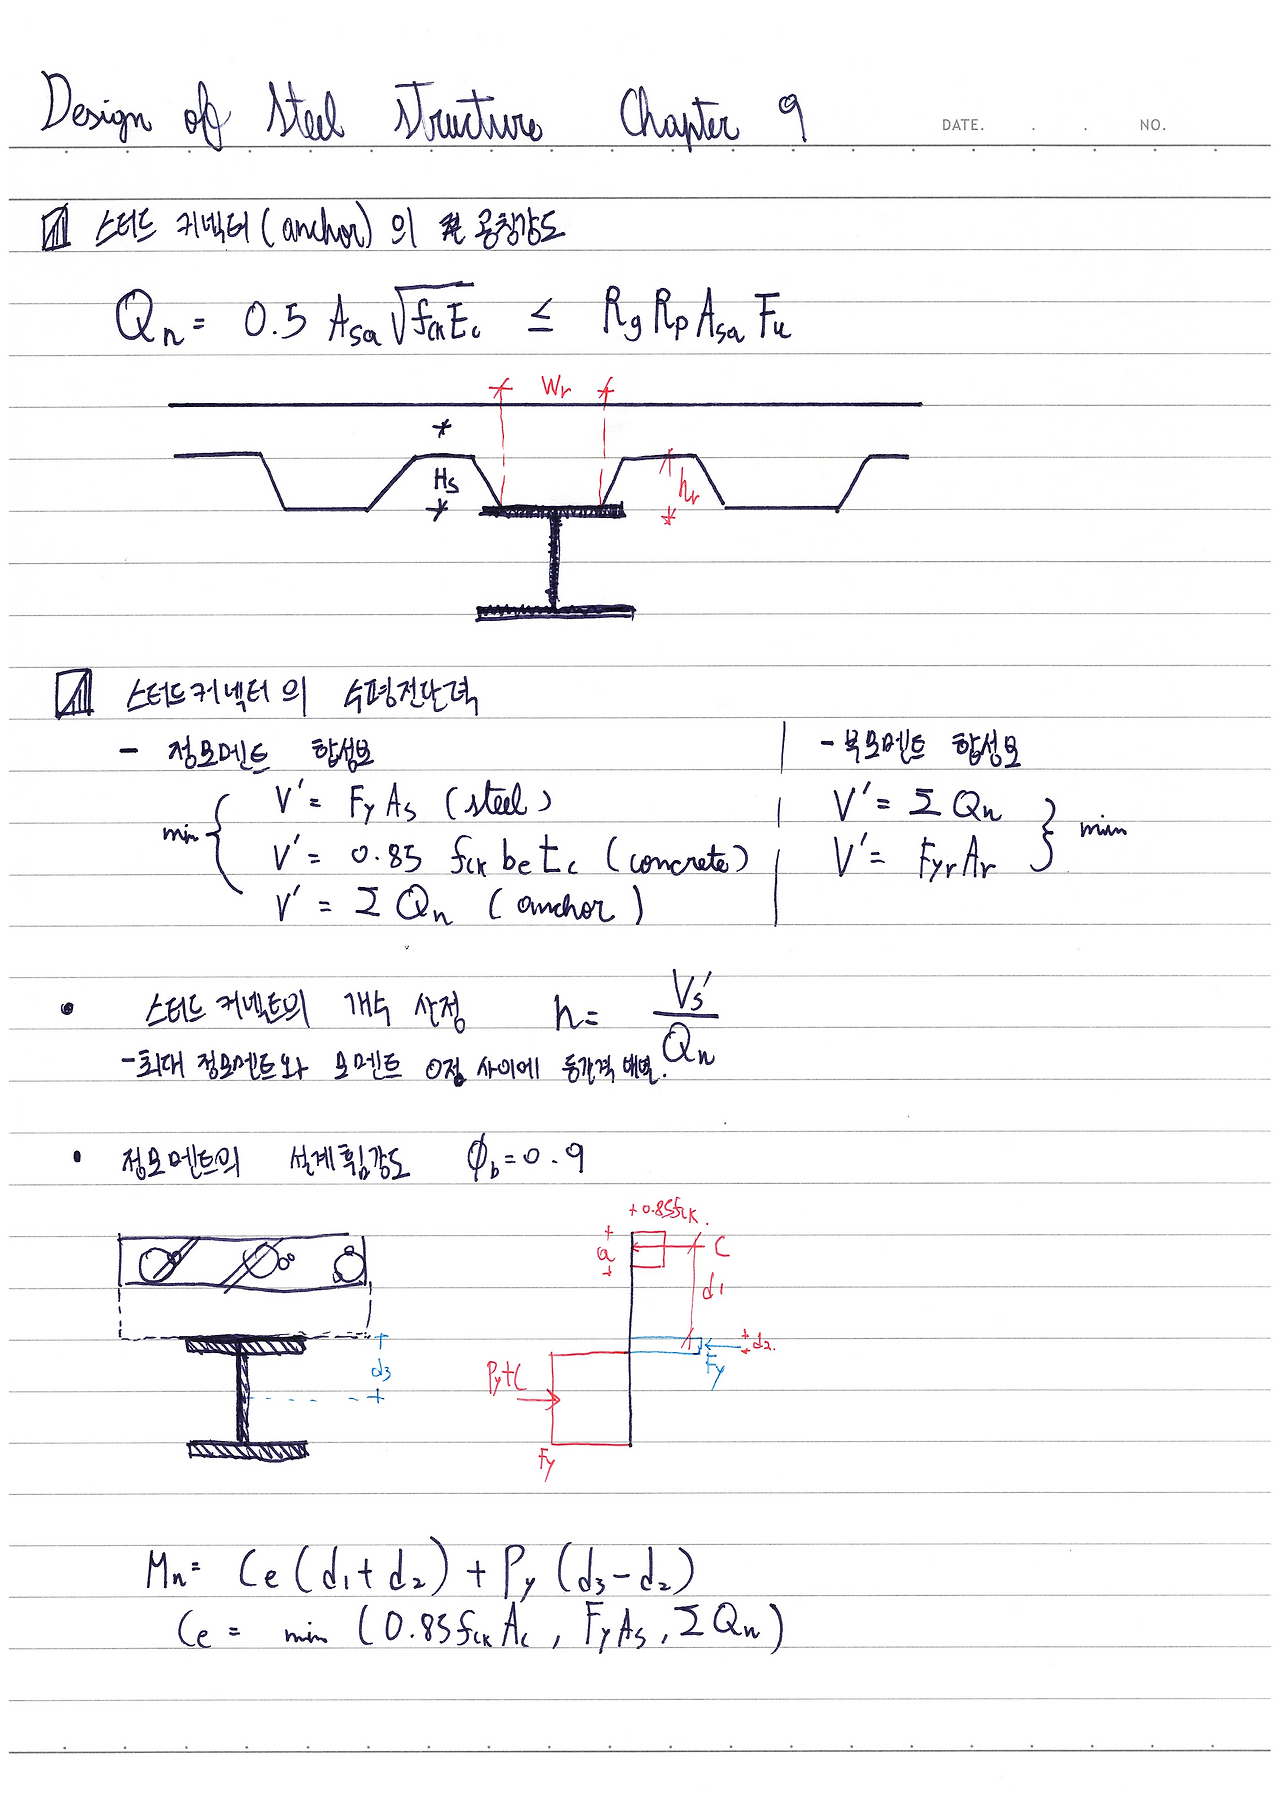 Design of Steel Structure Chapter 9
DATE. . . NO.
스터드 커넥터(anchor)의 공칭강도
Qn = 0.5 Asa √fck Ec ≤ Rg Rp Asa Fu
Wr
Hs
hr
스터드커넥터의 수평전단력
- 정모멘트 합성보
min
V' = Fy As (steel)
V' = 0.85 fck be tc (concrete)
V' = Σ Qn (anchor)
- 부모멘트 합성보
V' = Σ Qn
V' = Fyr Ar
min
• 스터드 커넥트의 개수 산정 n = Vs' / Qn
- 최대 정모멘트와 모멘트 0점 사이에 등간격 배열.
• 정모멘트의 설계휨강도 Φb = 0.9
d3
0.85fck.
a
C
d1
d2.
Fy
Py+C
Fy
Mn = Ce (d1 + d2) + Py (d3 - d2)
Ce = min (0.85fck Ac, Fy As, Σ Qn)